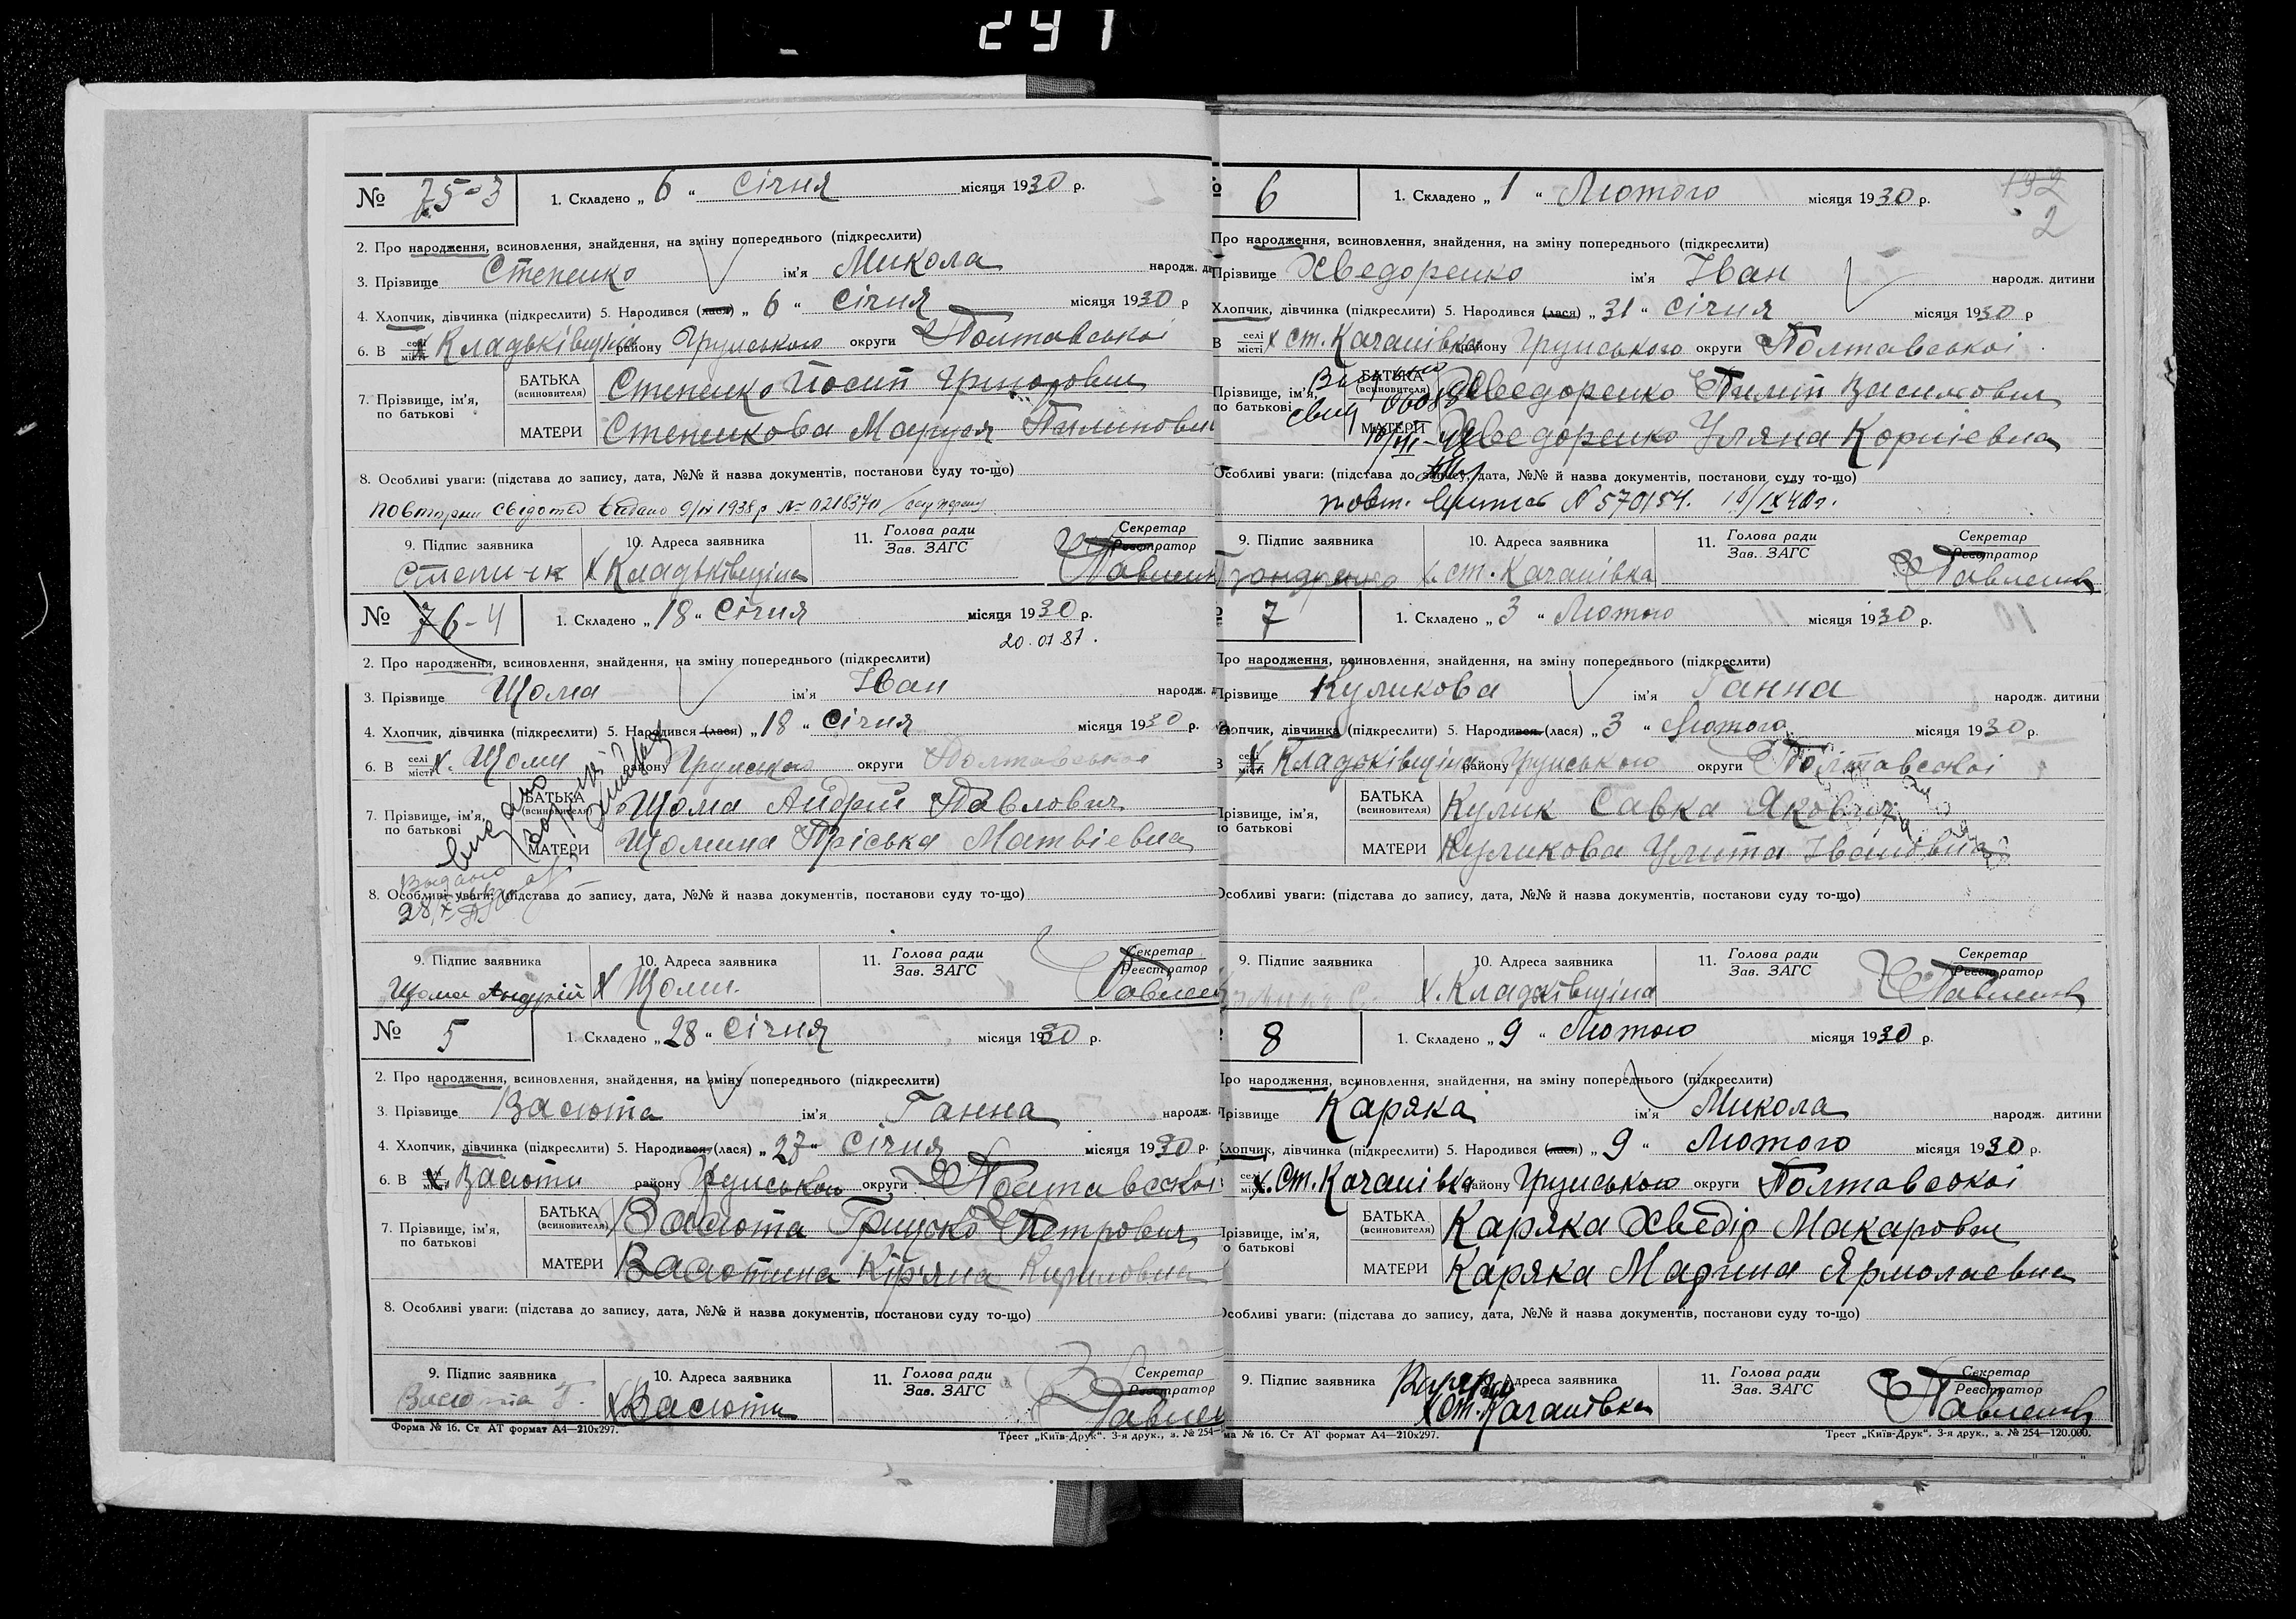 291
№ 75-3
1. Складено „ 6 “ Січня місяця 1930 р.
2. Про народження, всиновлення, знайдення, на зміну попереднього (підкреслити)
3. Прізвище Степенко ім'я Микола народж.
4. Хлопчик, дівчинка (підкреслити) 5. Народився (лася) „ 6 “ Січня місяця 1930 р
6. В селі місті х Кладьківщина району Грунського округи Полтавської
7. Прізвище, ім'я, по батькові
БАТЬКА (всиновителя) Степенко Йосип Григорович
МАТЕРИ Степенкова Маруся Пилиповн
8. Особливі уваги: (підстава до запису, дата, №№ й назва документів, постанови суду то-що)
повторни свідотво видано 9/IV 1938 р №
9. Підпис заявника
10. Адреса заявника
11. Голова ради
Зав. ЗАГС
Секретар
Реєстратор
х Кладьківщина
№ 76-4
1. Складено „ 18 “ Січня місяця 1930 р.
20.01.81.
2. Про народження, всиновлення, знайдення, на зміну попереднього (підкреслити)
3. Прізвище Щома ім'я Іван народж.
4. Хлопчик, дівчинка (підкреслити) 5. Народився (лася) „ 18 “ Січня місяця 1930 р.
6. В селі місті х. Щоми району Грунського округи Полтавської
7. Прізвище, ім'я, по батькові
БАТЬКА (всиновителя) Щома Андрій Павлович
МАТЕРИ Щомина Пріська Матвієвна
8. Особливі уваги: (підстава до запису, дата, №№ й назва документів, постанови суду то-що)
9. Підпис заявника
10. Адреса заявника
11. Голова ради
Зав. ЗАГС
Секретар
Реєстратор
Щома Андрій х Щоми. Павлен
№ 5
1. Складено „ 28 “ Січня місяця 1930 р.
2. Про народження, всиновлення, знайдення, на зміну попереднього (підкреслити)
3. Прізвище Васюта ім'я Ганна народж.
4. Хлопчик, дівчинка (підкреслити) 5. Народився (лася) „ 27 “ Січня місяця 1930 р.
6. В х. Васюти району Грунського округи Полтавської
7. Прізвище, ім'я, по батькові
БАТЬКА (всиновителя) Васюта Грицько Петрович
МАТЕРИ Васютина Кір'яна Кириловна
8. Особливі уваги: (підстава до запису, дата, №№ й назва документів, постанови суду то-що)
9. Підпис заявника
10. Адреса заявника
11. Голова ради
Зав. ЗАГС
Секретар
Реєстратор
Васюта Г. х Васюти Павлен
Форма № 16. Ст АТ формат А4—210х297.
Трест „Київ-Друк“. 3-я друк., з. № 254—
192
2
6
1. Складено „ 1 “ Лютого місяця 1930 р.
Про народження, всиновлення, знайдення, на зміну попереднього (підкреслити)
Прізвище Хведоренко ім'я Іван народж. дитини
Хлопчик, дівчинка (підкреслити) 5. Народився (лася) „ 31 “ Січня місяця 1930 р
В селі місті х ст. Качанівка району Грунського округи Полтавської
Прізвище, ім'я, по батькові
БАТЬКА (всиновителя) Хведоренко Пилип Василович
МАТЕРИ Хведоренко Уляна Корнієвна
Особливі уваги: (підстава до запису, дата, №№ й назва документів, постанови суду то-що)
повт. N 570154. 19/IX 40 г.
9. Підпис заявника
10. Адреса заявника
11. Голова ради
Зав. ЗАГС
Секретар
Реєстратор
х. ст. Качанівка Павленко
7
1. Складено „ 3 “ Лютого місяця 1930 р.
Про народження, всиновлення, знайдення, на зміну попереднього (підкреслити)
Прізвище Куликова ім'я Ганна народж. дитини
Хлопчик, дівчинка (підкреслити) 5. Народився (лася) „ 3 “ Лютого місяця 1930 р.
В селі місті х Кладьківщина району Грунського округи Полтавської
Прізвище, ім'я, по батькові
БАТЬКА (всиновителя) Кулик Савка Якович
МАТЕРИ Куликова Улита Івановна
Особливі уваги: (підстава до запису, дата, №№ й назва документів, постанови суду то-що)
9. Підпис заявника
10. Адреса заявника
11. Голова ради
Зав. ЗАГС
Секретар
Реєстратор
х. Кладьківщина Павленко
8
1. Складено „ 9 “ Лютого місяця 1930 р.
Про народження, всиновлення, знайдення, на зміну попереднього (підкреслити)
Прізвище Каряка ім'я Микола народж. дитини
Хлопчик, дівчинка (підкреслити) 5. Народився (лася) „ 9 “ Лютого місяця 1930 р.
х. ст. Качанівка району Грунського округи Полтавської
Прізвище, ім'я, по батькові
БАТЬКА (всиновителя) Каряка Хведір Макарович
МАТЕРИ Каряка Марина Ярмолаевна
Особливі уваги: (підстава до запису, дата, №№ й назва документів, постанови суду то-що)
9. Підпис заявника
Адреса заявника
11. Голова ради
Зав. ЗАГС
Секретар
Реєстратор
х ст. Качанівка Павленко
№ 16. Ст АТ формат А4—210х297.
Трест „Київ-Друк“. 3-я друк., з. № 254—120.000.